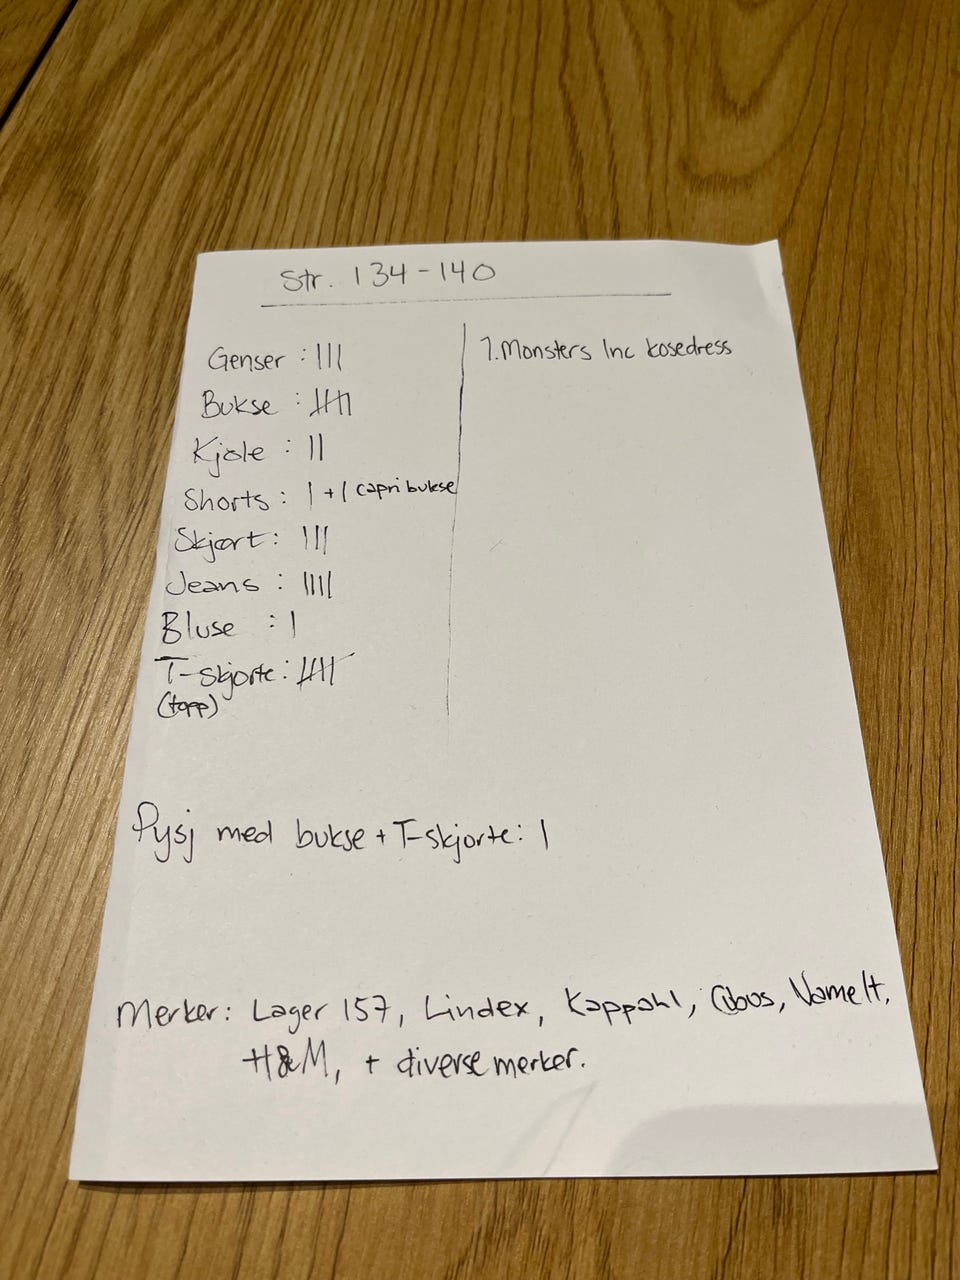 Str. 134-140
Genser : |||
Bukse : 卌
Kjole : ||
Shorts : | + 1 capri bukse
Skjørt : |||
Jeans : ||||
Bluse : |
T-skjorte : 卌
(topp)
1. Monsters Inc kosedress
Pysj med bukse + T-skjorte : |
Merker: Lager 157, Lindex, Kappahl, Cubus, Name It,
H&M, + diverse merker.